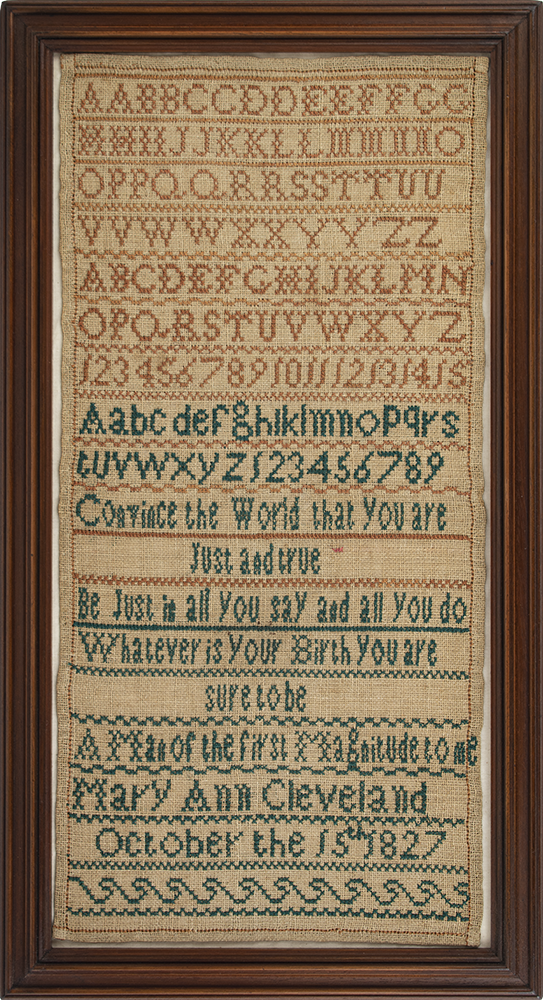 AABBCCDDEEFFGG
HHIIJJKKLLMMNNO
OPPQQRRSSTTUU
VVWWXXYYZZ
ABCDEFGHIJKLMN
OPQRSTUVWXYZ
123456789101112131415
Aabcdefghiklmnopqrs
tuvwxyz123456789
Convince the World that you are
Just and true
Be Just in all you say and all you do
Whatever is your Birth you are
sure to be
A Man of the first Magnitude to me
Mary Ann Cleveland
October the 15th 1827